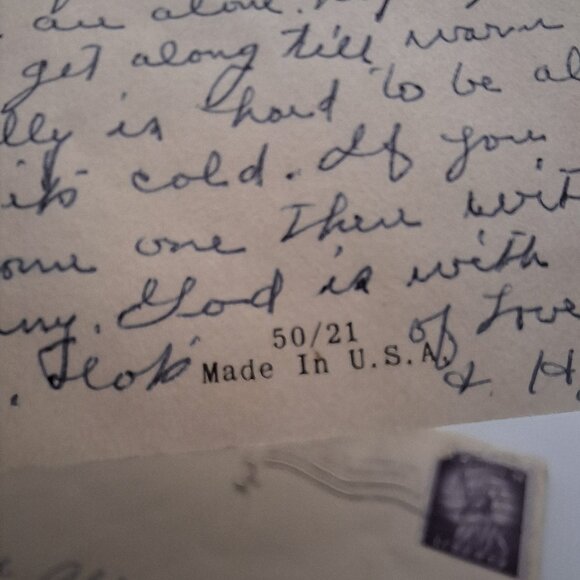 are alone.
get along till warm
lly is hard to be al
its cold. If you
ome one there wit
ny. God is with
50/21 of Love
Made In U.S.A. & H